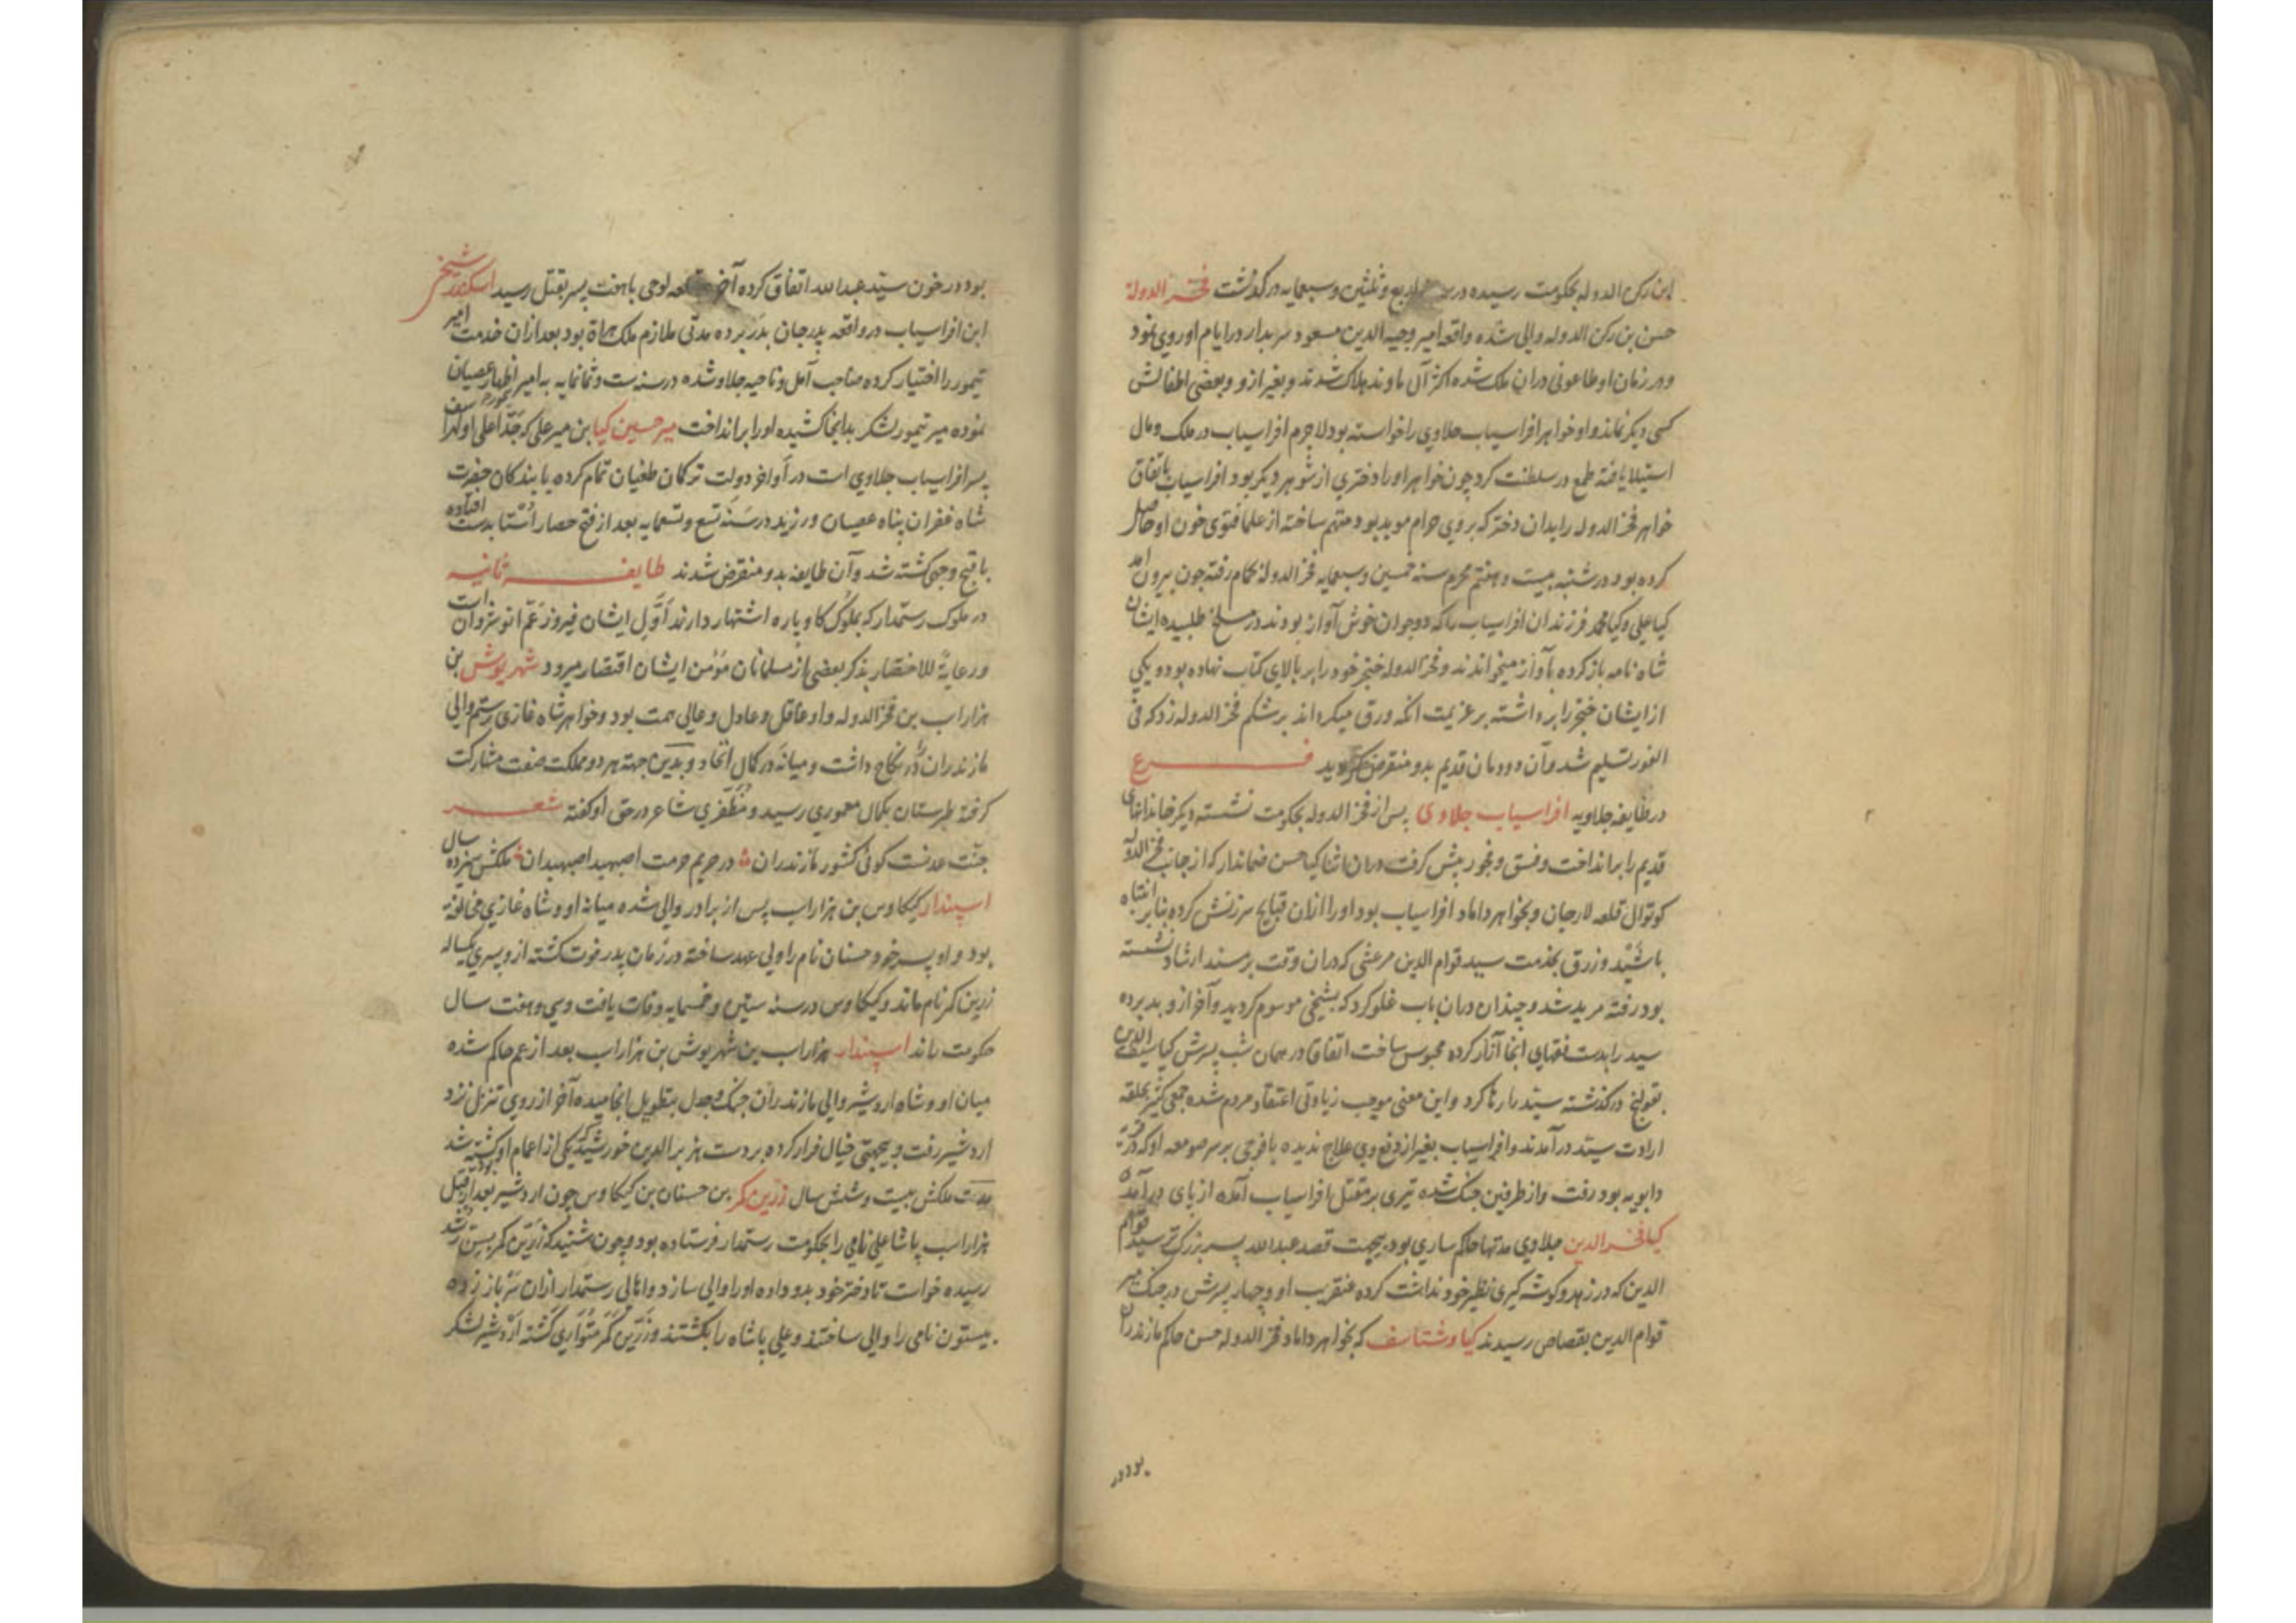 ابن رکن الدوله بحکومت رسیده در اربع و ثلثین و سبعمایه درگذشت فخر الدولة
حسن بن رکن الدوله والی شده واقعه امیر وجیه الدین مسعود سربدار در ایام او روی نمود
و در زمان او طاعونی دران ملک شده اکثر آل باوند هلاک شدند و بغیر ازو و بعضی اطفالش
کسی دیکر نماند و او خواهر افراسیاب جلاوی را خواسته بود لاجرم افراسیاب در ملک و مال
استیلا یافته طمع در سلطنت کرد چون خواهر او را دختری از شوهر دیکر بود افراسیاب باتفاق
خواهر فخر الدوله را بدان دختر که بروی حرام موبد بود متهم ساخته از علما فتوی خون او حاصل
کرده بود در شنبه بیست و هفتم محرم سنه خمسین و سبعمایه فخر الدوله بحمام رفته چون بیرون آمد
کیا علی و کیا محمد فرزندان افراسیاب را که دو جوان خوش آواز بودند در مسلخ طلبیده ایشان
شاه نامه باز کرده بآواز میخواندند و فخر الدوله خنجر خود را بر بالای کتاب نهاده بود و یکی
از ایشان خنجر را برداشته بر عزیمت آنکه ورق میکرداند بر شکم فخر الدوله زد که فی
الفور تسلیم شد و آن دودمان قدیم بدو منقرض کردید فرع
در طایفه جلاویه افراسیاب جلاوی پس از فخر الدوله بحکومت نشسته دیکر خاندانهای
قدیم را برانداخت و فسق و فجور پیش کرفت دران اثنا کیا حسن ضماندار که از جانب فخر الدوله
کوتوال قلعه لارجان و بخواهر داماد افراسیاب بود او را ازان قبایح سرزنش کرده بنابر انتباه
با شید و زرق بخدمت سید قوام الدین مرعشی که دران وقت بر مسند ارشاد نشسته
بود رفته مرید شد و چندان دران باب غلو کرد که بشیخی موسوم کردید و آخر ازو بد برده
سید را بدست فقهای آنجا آزار کرده محبوس ساخت اتفاقا در همان شب پسرش کیا سیف الدین
بقولنج درگذشته سید را رها کرد و این معنی موجب زیادتی اعتقاد مردم شده جمعی کثیر بحلقه
ارادت سید درآمدند و افراسیاب بغیر از دفع وی علاج ندیده با فوجی بر سر صومعه او که در قریه
دابویه بود رفت و از طرفین جنک شده تیری بر مقتل افراسیاب آمده از پای درآمد
کیا فخر الدین جلاوی مدتها حاکم ساری بود بجهت قصد عبدالله پسر بزرک‌تر سید قوام
الدین که در زهد و کوشه کیری نظیر خود نداشت کرده عنقریب او و چهار پسرش در جنک میر
قوام الدین بقصاص رسیدند کیا وشتاسف که بخواهر داماد فخر الدوله حسن حاکم مازندران
بود در
بود در خون سید عبدالله اتفاق کرده آخر قلعه لوجی با هفت پسر بقتل رسید اسکندر شیخی
ابن افراسیاب در واقعه پدر جان بدر برده مدتی ملازم ملک هراة بود بعد ازان خدمت امیر
تیمور را اختیار کرده صاحب آمل و ناحیه جلاو شده در سنه ست و ثمانمایه به امیر اظهار عصیان
نموده میر تیمور لشکر بدانجا کشیده او را برانداخت میر حسین کیا بن میر علی که جد اعلی او لهراسف
پسر افراسیاب جلاوی است در اواخر دولت ترکمان طغیان تمام کرده با بندکان حضرت
شاه غفران پناه عصیان ورزید در سنه تسع و تسعمایه بعد از فتح حصار استا بدست افتاده
باقبح وجهی کشته شد و آن طایفه بدو منقرض شدند طایفه ثانیه
در ملوک رستمدار که بملوک کاوپاره اشتهار دارند اول ایشان فیروز عم انوشروان است
و رعایة للاختصار بذکر بعضی از مسلمانان مؤمن ایشان اقتصار میرود شهریوش بن
هزاراسب بن فخر الدوله و او عاقل و عادل و عالی همت بود و خواهر شاه غازی رستم والی
مازندران در نکاح داشت و میانه در کمال اتحاد و بدین جهة هر دو مملکت صفت مشارکت
کرفته طبرستان بکمال معموری رسید و مظفری شاعر در حق او کفته شعر
جنت عدنست کوئی کشور مازندران در حریم حرمت اصبهبد اصبهبدان ملکش سیزده سال
اسپندار کیکاوس بن هزاراسب پس از برادر والی شده میانه او و شاه غازی مخالفت
بود و او پسر خود جستان نام را ولی عهد ساخته در زمان پدر فوت کشته ازو پسری یکساله
زرین کمر نام ماند و کیکاوس در سنه ستین و خمسمایه وفات یافت و سی و هفت سال
حکومت راند اسپندار هزاراسب بن شهریوش بن هزاراسب بعد از عم حاکم شده
میان او و شاه اردشیر والی مازندران جنک و جدل بتطویل انجامیده آخر از روی تنزل نزد
اردشیر رفت و بجهتی خیال فرار کرده بر دست هزبر الدین خورشید که یکی از اعمام او کشته شد
مدت ملکش بیست و شش سال زرین کمر بن جستان بن کیکاوس چون اردشیر بعد از قتل
هزاراسب پاشا علی نامی را بحکومت رستمدار فرستاده بود و چون شنید که زرین کمر بسن رشد
رسیده خواست تا دختر خود بدو داده او را والی سازد و اهالی رستمدار ازان سر باز زده
بیستون نامی را والی ساختند و علی پاشاه را بکشتند و زرین کمر متواری کشته اردشیر لشکر